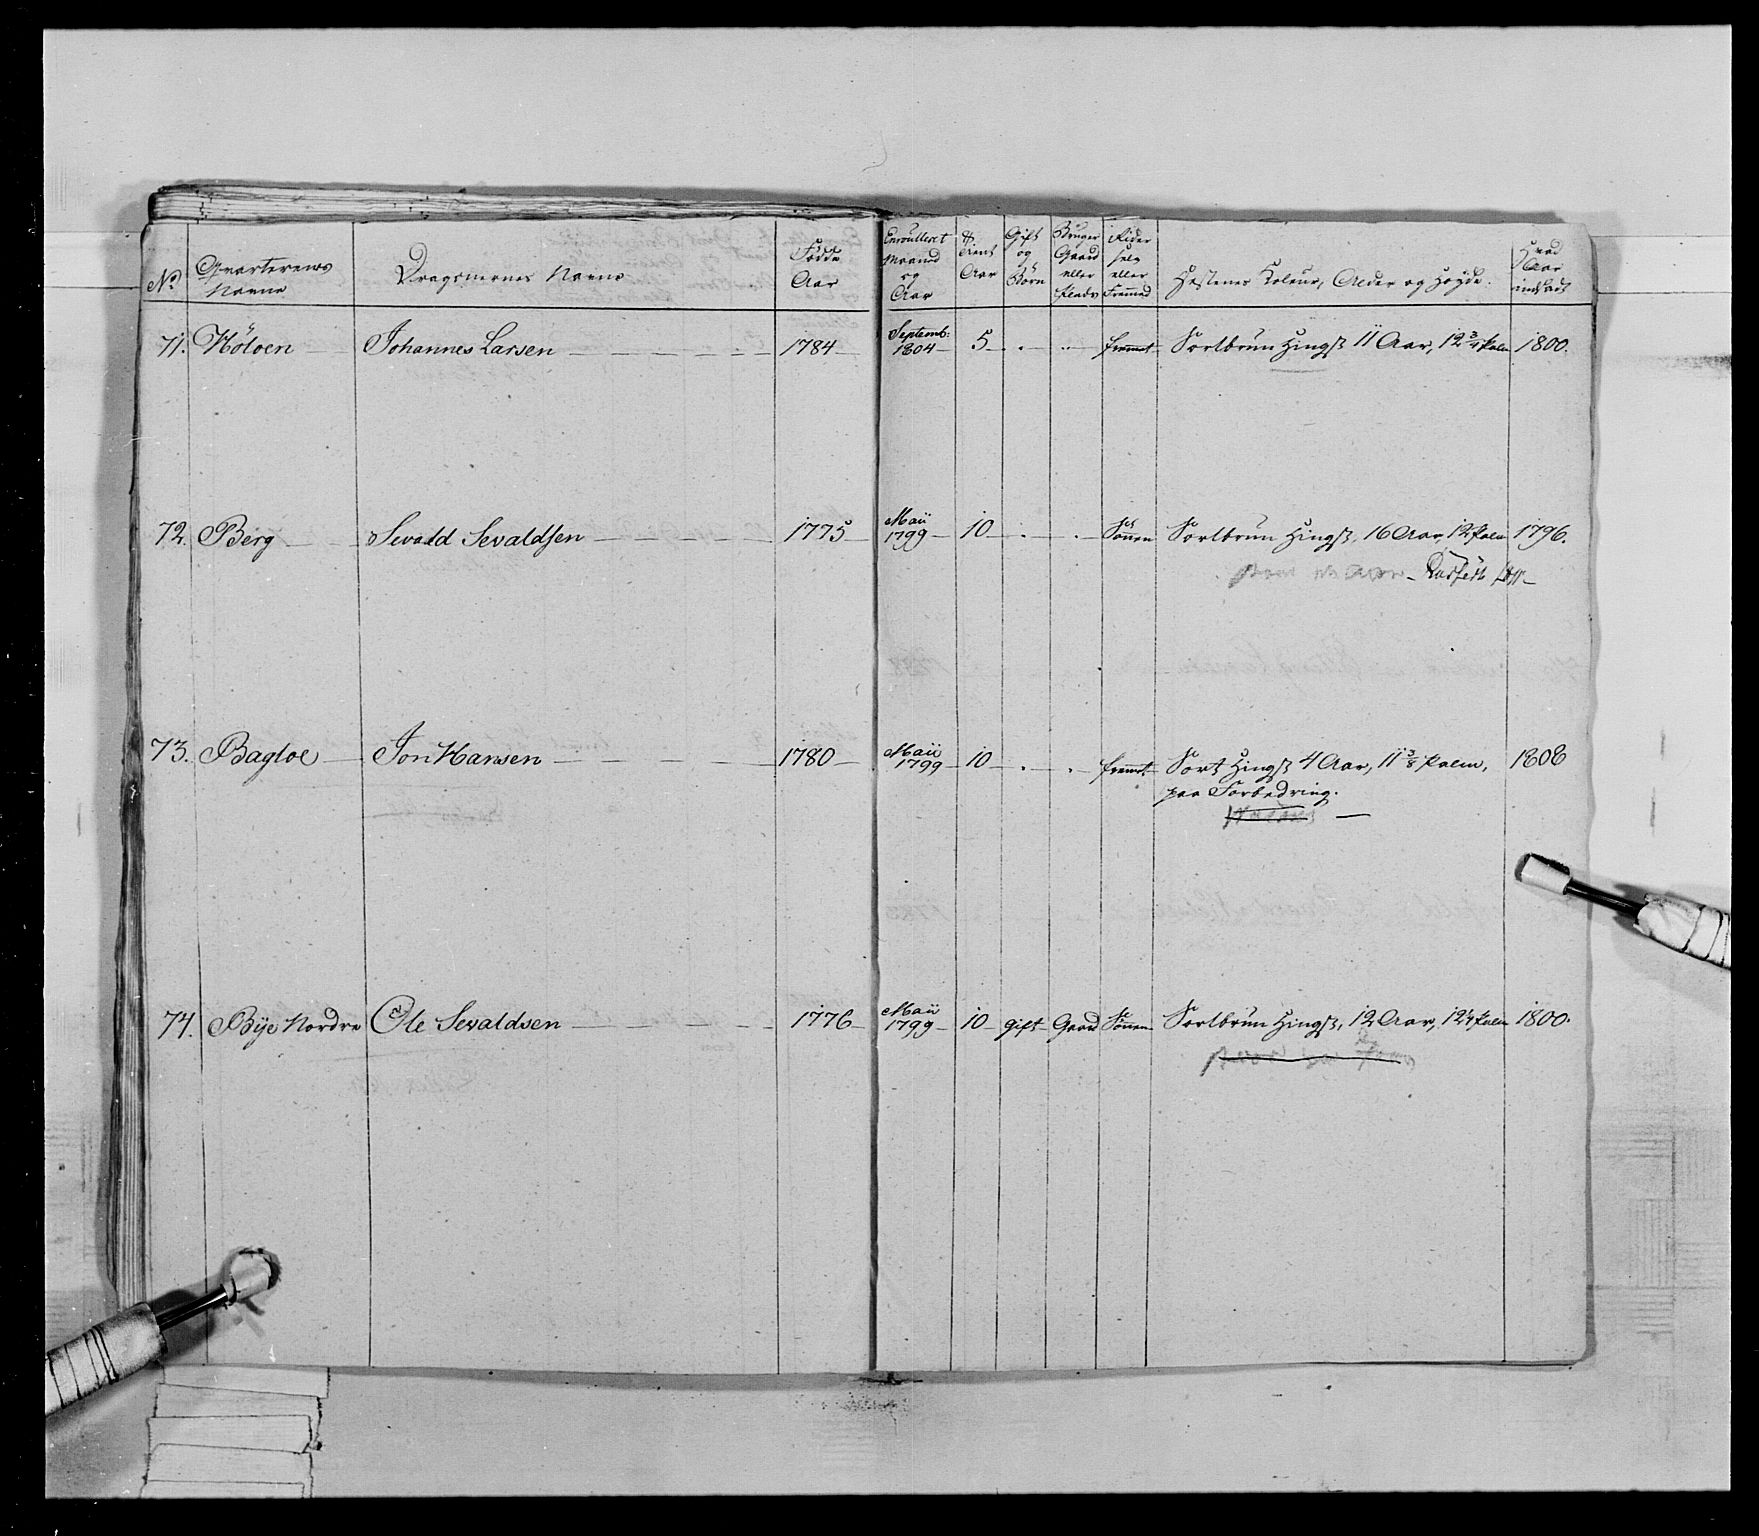 No
Qvarterenes
Navne
Dragonernes Navne
Födde
Aar
Enroulleret
Maaned
og
Aar
Tient
Aar
Gift
og
Börn
Bruger
Gaard
eller
Plads
Rider
selv
eller
Fremmed
Hestenes Koleur, Alder og Höyde.
Hvad
Aar
indsadt
71. Höloen Johannes Larsen 1784 Septemb: 1804 5 fremmet Sortbrun Hingst 11 Aar, 12 3/4 Palm 1800.
72. Berg Sevald Sevaldsen 1775 Maii 1799 10 Sönnen Sortbrun Hingst, 16 Aar, 12 Palm 1796.
Aar Cassert
73. Bagloe Jon Hansen 1780 Maii 1799 10 fremmet Sort Hingst 4 Aar, 11 3/8 Palm, 1808
paa Forbedring.
74. Bÿe Nordre Ole Sevaldsen 1776 Maii 1799 10 gift Gaard Sönnen Sortbrun Hingst, 12 Aar, 12 1/4 Palm 1800.